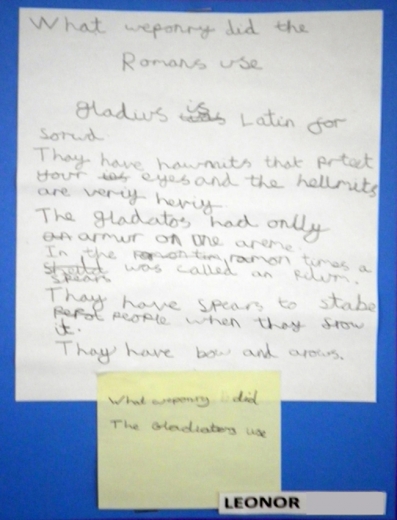 What weponry did the
Romans use
gladius is Latin for
Sorwd
Thay have hawmits that prtect
your eyes and the hellmits
are veriy heriy.
The gladatos had onlly
an armur on one areme.
In the roman times a
sheild was called an
Spears
Thay have spears to stabe
people when thay srow
it.
Thay have bow and arows.
What weponry did
The Gladiators use
LEONOR